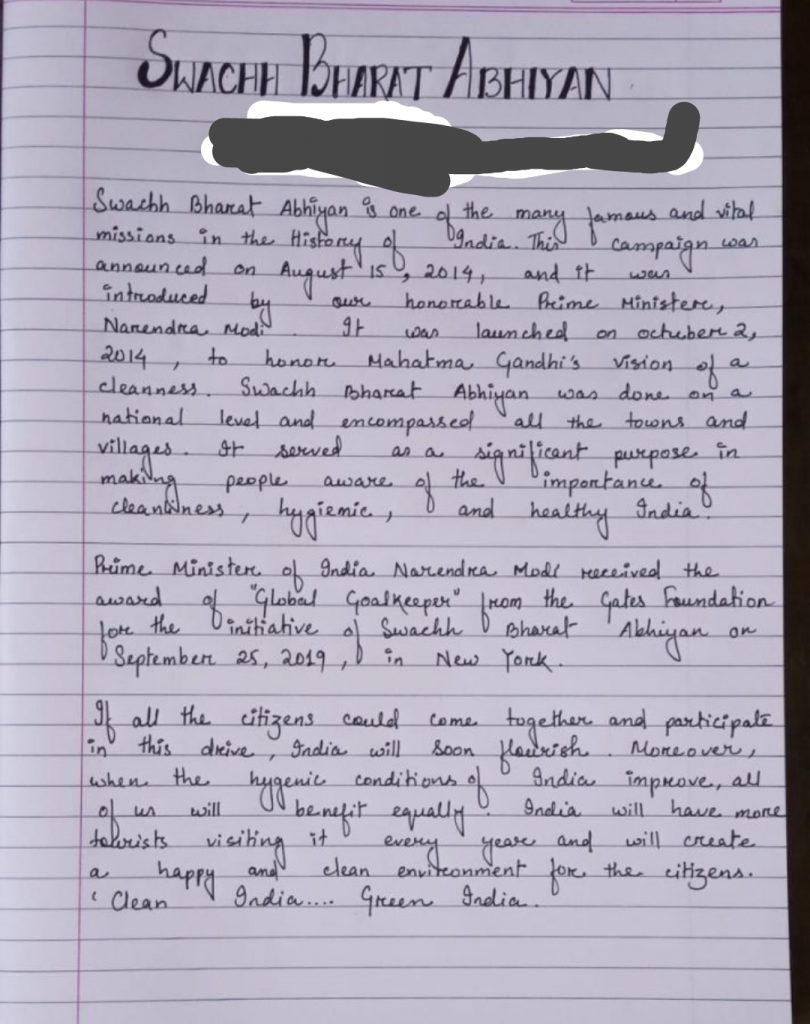 SWACHH BHARAT ABHIYAN
Swachh Bharat Abhiyan is one of the many famous and vital
missions in the History of India. This campaign was
announced on August 15, 2014, and it was
introduced by our honorable Prime Minister,
Narendra Modi. It was launched on octuber 2,
2014, to honor Mahatma Gandhi's vision of a
cleanness. Swachh Bharat Abhiyan was done on a
national level and encompassed all the towns and
villages. It served as a significant purpose in
making people aware of the importance of
cleanness, hygiemic, and healthy India.
Prime Minister of India Narendra Modi received the
award of "Global Goalkeeper" from the Gates Foundation
for the initiative of Swachh Bharat Abhiyan on
September 25, 2019, in New York.
If all the citizens could come together and participate
in this drive, India will soon flourish. Moreover,
when the hygenic conditions of India improve, all
of us will benefit equally. India will have more
tourists visiting it every year and will create
a happy and clean environment for the citizens.
' Clean India.... Green India.